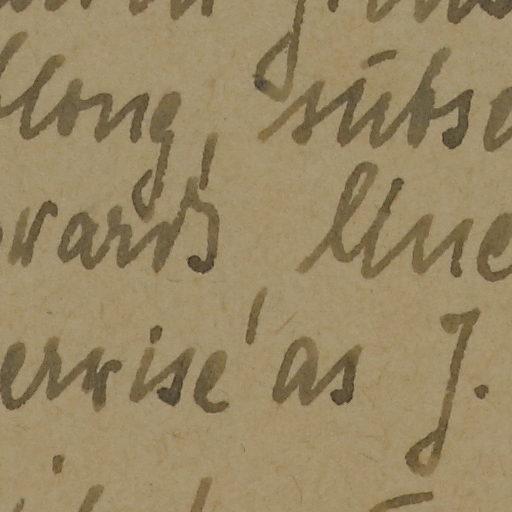 long, subs
wards, line
erwise as J.